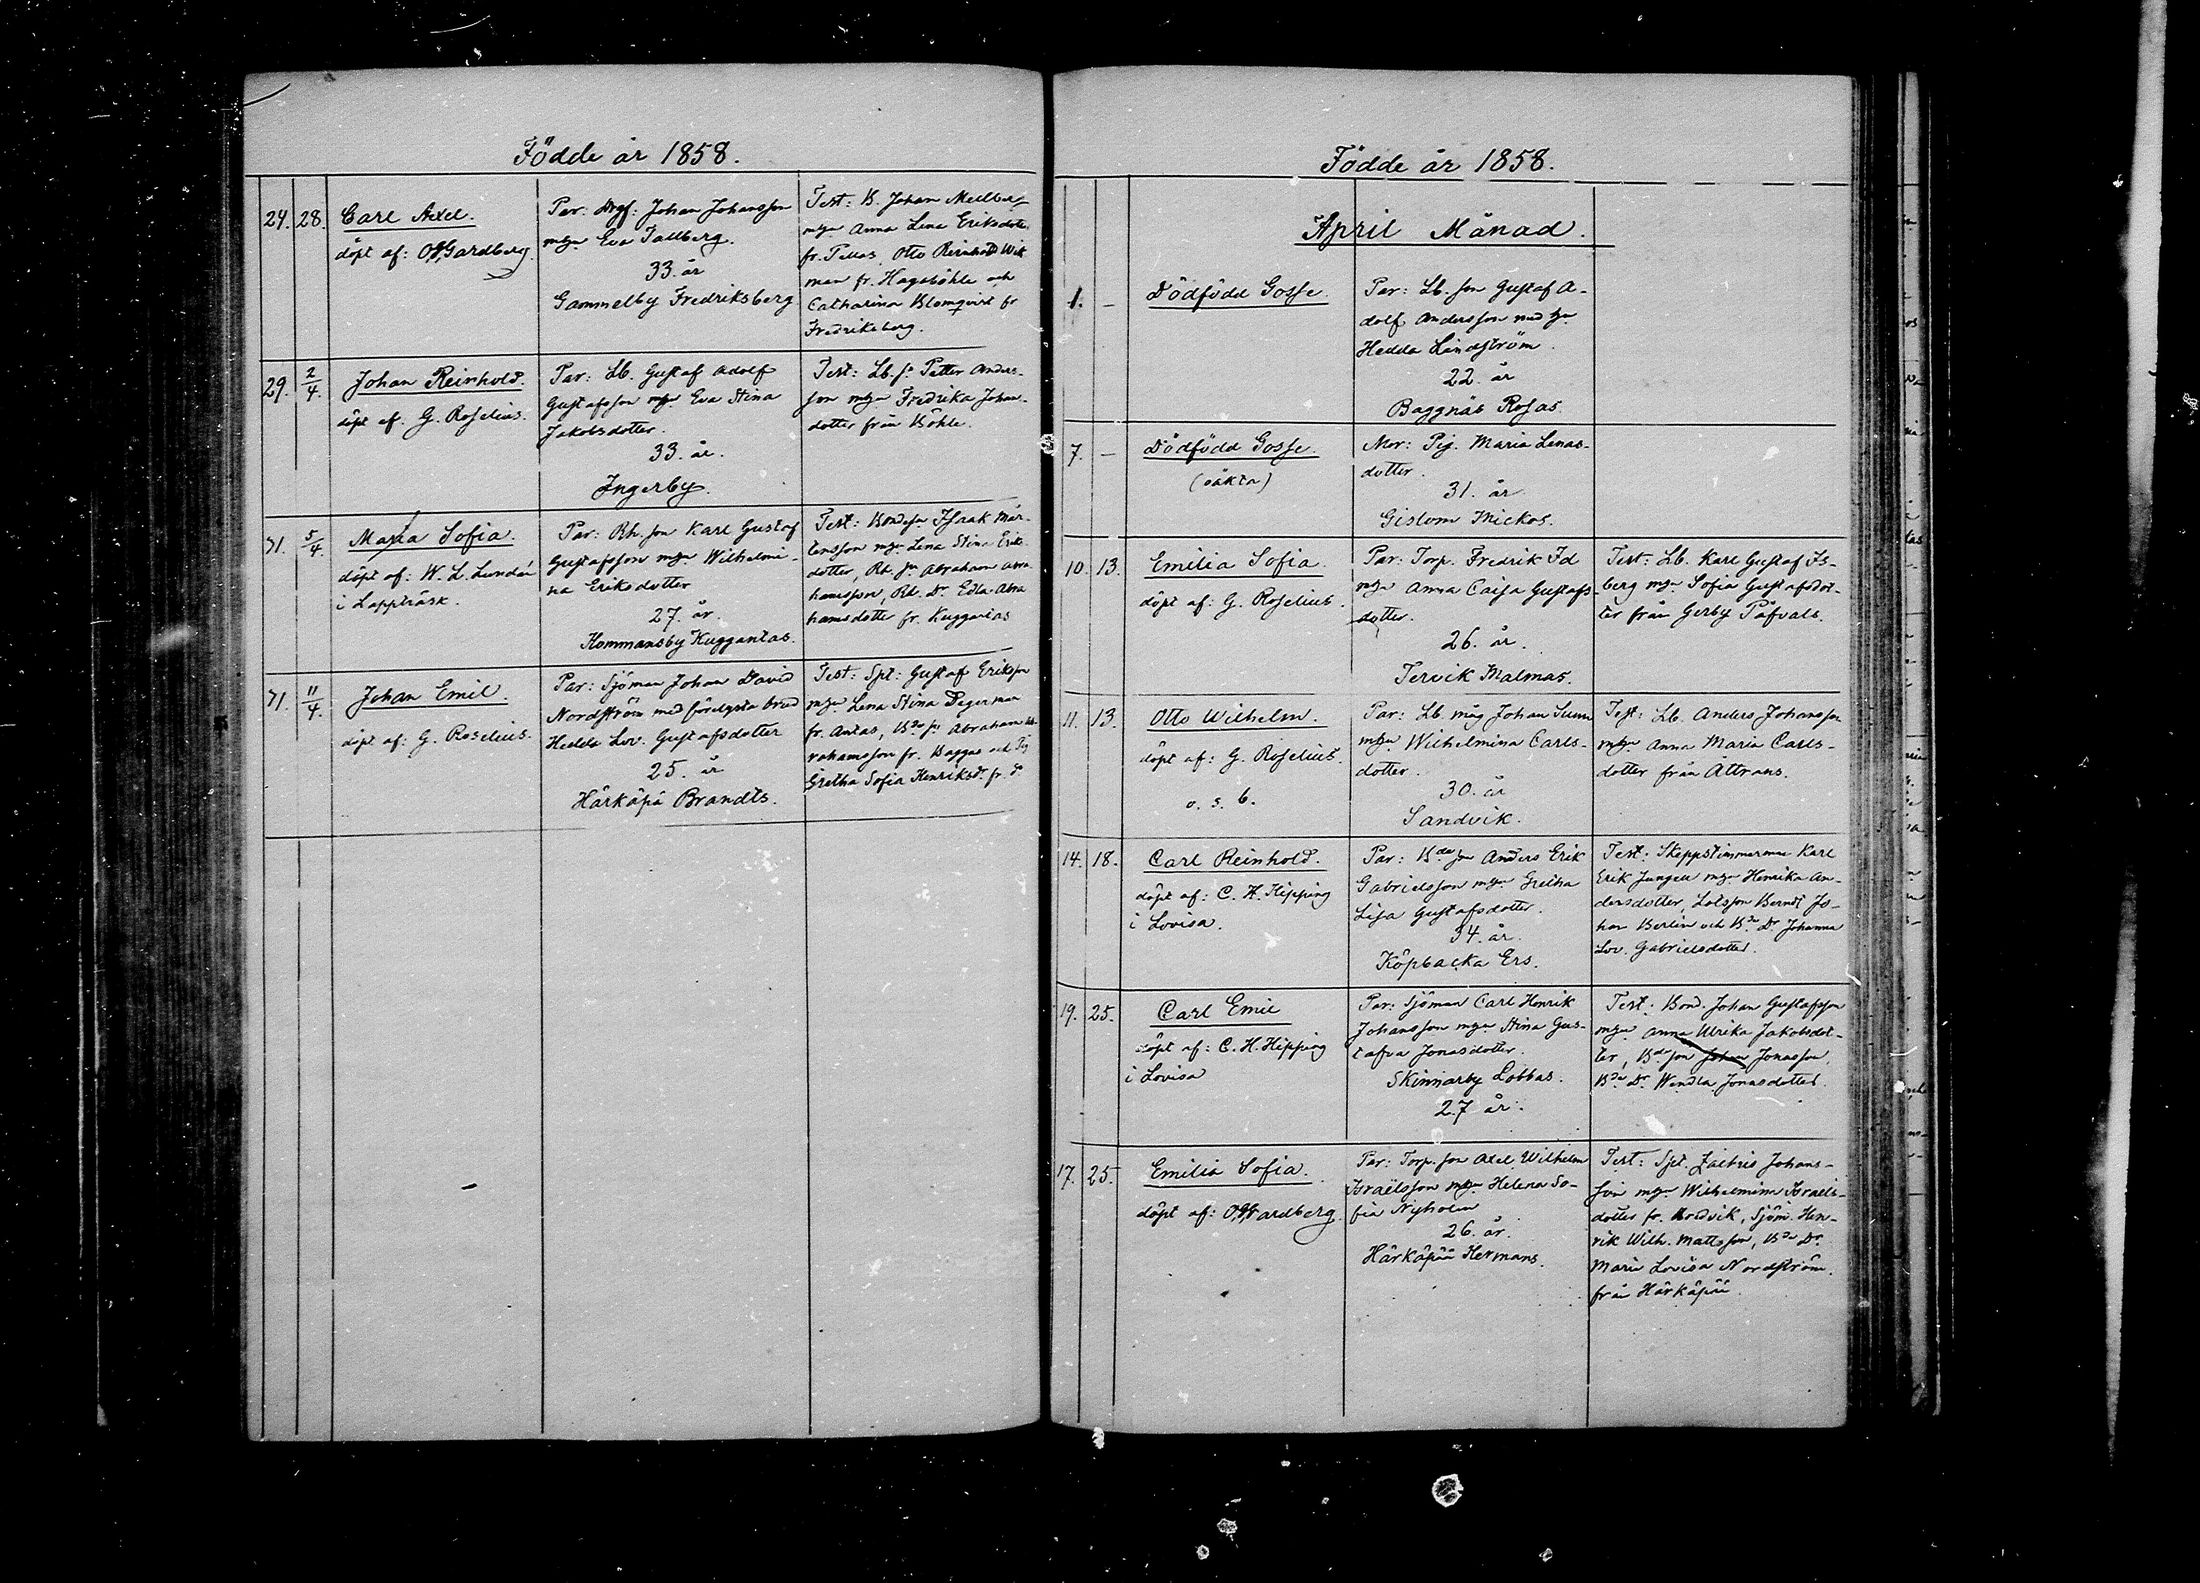 Födde år 1858.
24. 28. Carl Axel.
döpt af: O. Gardberg.
Par: Drgf: Johan Johansson
mhu Eva Tallberg.
33. år
Gammelby Fredriksberg
Test: B. Johan Medberg
mhu Anna Lena Eriksdott.
fr. Tetas, Otto Reinhold Wik
man fr. Hagsböhle och
Catharina Blomqvist fr
Fredriksberg.
29. 2/4 Johan Reinhold.
döpt af. G. Roselius.
Par: Lb. Gustaf Adolf
Gustafsson mhu Eva Stina
Jakobsdotter.
33. år.
Ingerby.
Test: Lb. sn Petter Anders-
son mhu Fredrika Johan-
dotter från Böhle.
31. 5/4. Maria Sofia.
döpt af: W. L. Lundén
i Lappträsk.
Par: Rh. son Karl Gustaf
Gustafsson mhu Wilhelmi-
na Eriksdotter
27. år.
Hommansby Kuggantas.
Test: Bondesn Isaak Mår-
tensson mhu Lena Stina Eriks-
dotter, Rh. sn Abraham Abra
hamsson, Rh. Dr. Edla Abra
hamsdotter fr. Kuggantas
31. 11/4. Johan Emil.
döpt af: G. Roselius.
Par: Sjöman Johan David
Nordström med förelysta brud
Hedda Lov. Gustafsdotter
25. år
Härkäpä Brandts.
Test: Spt: Gustaf Eriksson
mhu Lena Stina Degerman
fr. Antas, Bde sn Abraham Ab-
rahamsson fr. Baggas och Pig
Gretha Sofia Henriksdr. fr. d
Födde år 1858.
April Månad.
1. – Dödfödd Gosse.
Par: Lb. son Gustaf A-
dolf Andersson med hu
Hedda Lindström.
22. år
Baggnäs Rosas
7. – Dödfödd Gosse.
(oäkta)
Mor: Pig. Maria Lenas-
dotter.
31. år.
Gislom Mickos.
10. 13. Emilia Sofia.
döpt af: G. Roselius.
Par: Torp. Fredrik Id
mhu Anna Caisa Gustafs-
dotter.
26. år.
Tervik Malmas.
Test: Lb. Karl Gustaf Is-
berg mhu Sofia Gustafsdot-
ter från Gerby Påfvals.
11. 13. Otto Wilhelm.
döpt af: G. Roselius.
o. s. b.
Par: Lb. måg Johan Sunn
mhu Wilhelmina Carls-
dotter.
30. år
Sandvik.
Test: Lb. Anders Johansson
mhu Anna Maria Carls-
dotter från Åttrans.
14. 18. Carl Reinhold.
döpt af: C. H. Hipping
i Lovisa.
Par: Bde sn Anders Erik
Gabrielsson mhu Gretha
Lisa Gustafsdotter.
34. år.
Köpbacka Ers.
Test: Skeppstimmerman Karl
Erik Jungell mhu Henrika An-
dersdotter, Lotsson Berndt Jo-
han Berlin och Bde Dr Johanna
Lov. Gabrielsdotter.
19. 25. Carl Emil
döpt af: C. H. Hipping
i Lovisa
Par: Sjöman Carl Henrik
Johansson mhu Stina Gus-
tafva Jonasdotter.
Skinnarby Lobbas.
27 år.
Test: Bond. Johan Gustafsson
mhu Anna Ulrika Jakobsdot-
ter, Bde son Johan Jonasson,
Bde Dr Wendla Jonasdotter.
17. 25. Emilia Sofia.
döpt af: O. Gardberg.
Par: Torp. son Axel Wilhelm
Israelsson mhu Helena So-
fia Nyholm
26. år.
Härkäpää Hermans.
Test: Spt. Zachris Johans-
son mhu Wilhelmina Israels-
dotter fr. Kredvik, Sjöm. Hen-
rik Wilh. Mattsson, Bde Dr.
Maria Lovisa Nordström
från Härkäpää.